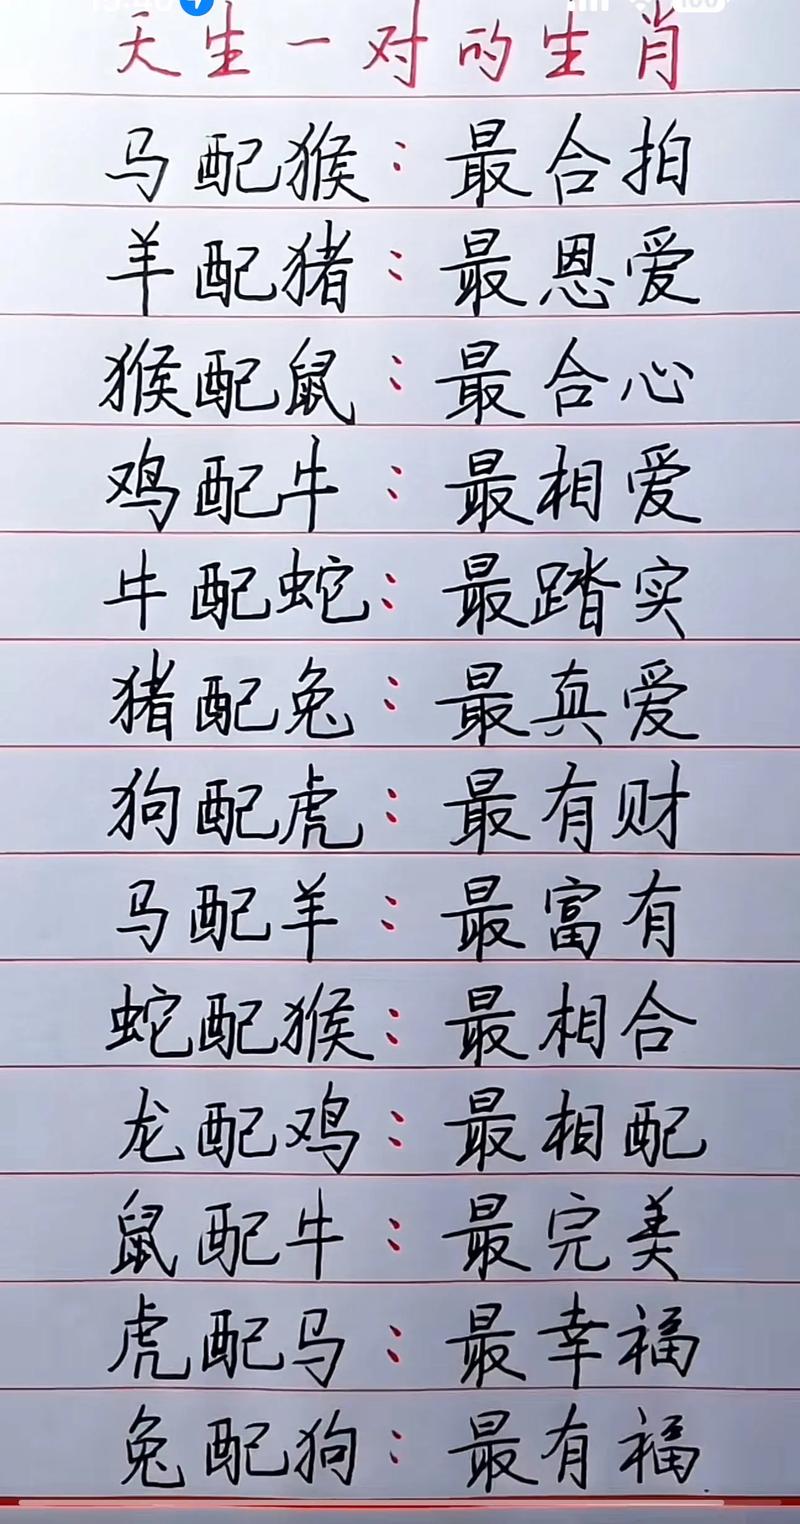 天生一对的生肖
马配猴：最合拍
羊配猪：最恩爱
猴配鼠：最合心
鸡配牛：最相爱
牛配蛇：最踏实
猪配兔：最真爱
狗配虎：最有财
马配羊：最富有
蛇配猴：最相合
龙配鸡：最相配
鼠配牛：最完美
虎配马：最幸福
兔配狗：最有福